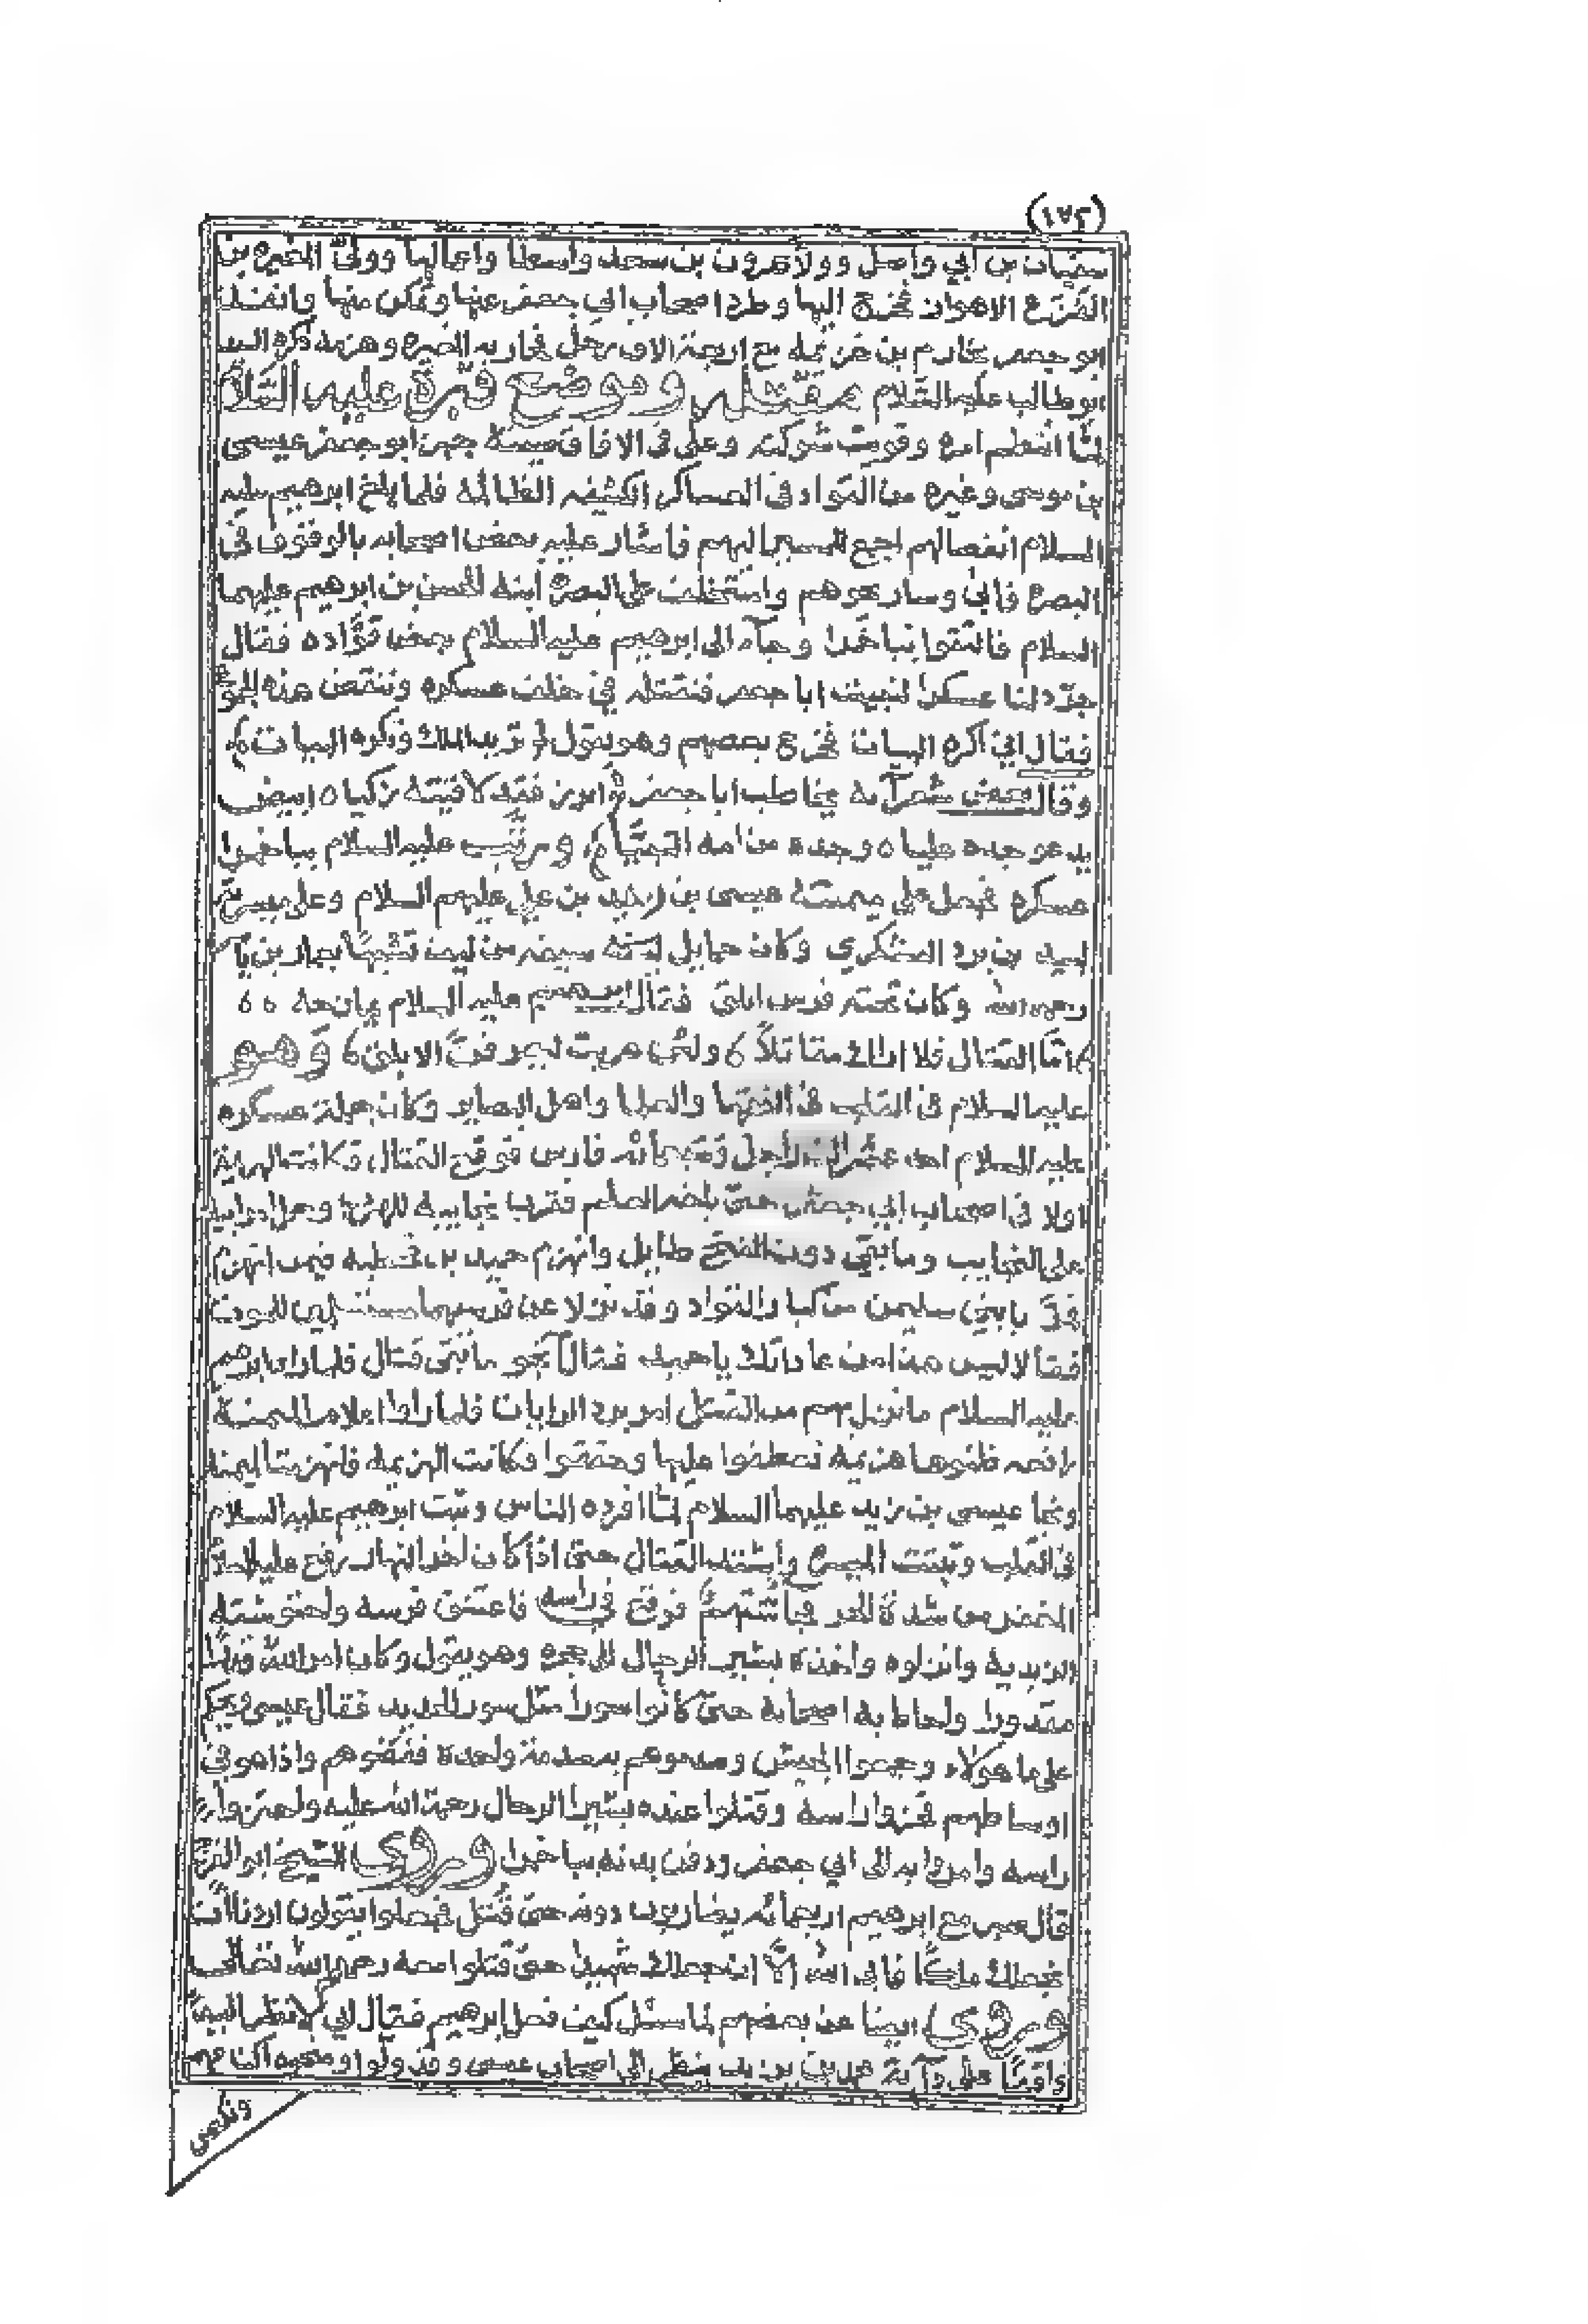 (١٧٤)
سفيان بن ابي واصل وولاه هرون بن سعد واسط واعمالها وولى المغيرة بن
الفزع الاهواز فخرج اليها وطرد اصحاب ابي جعفر عنها وتمكن منها وانفذ
ابو جعفر خازم بن خزيمة مع اربعة الاف رجل فحارب المغيرة وهزمه ذكره السيد
ابو طالب عليه السلام مقتله وموضع قبره عليه السلام
لما انتظم امره وقويت شوكته وعلى في الافاق صيته جهز ابو جعفر عيسى
بن موسى وغيره من القواد في العساكر الكثيفه الظالمه فلما بلغ ابرهيم عليه
السلام انفصالهم اجمع المسير اليهم فاشار عليه بعض اصحابه بالوقوف في
البصرة فابى وسار نحوهم واستخلف على البصرة ابنه الحسن بن ابرهيم عليهما
السلام فالتقوا بباخمرا وجآء الى ابرهيم عليه السلام بعض قواده فقال
جرد لنا عسكرا لنبيت ابا جعفر فنقتله في خلف عسكره
فقال اني اكره البيات فخرج بعضهم وهو يقول اتريد الملك وتكره البيات
وقال بعض شعرآئه يخاطب ابا جعفر ابرز فقد لاقيته زكيا ه ابيض
يدعو جده عليا ه وجده من امه النبيا ورتب عليه السلام بباخمرا
عسكره فجعل على ميمنته عيسى بن زيد بن علي عليهم السلام وعلى ميسرته
لبيد بن برد اليشكري وكان حمايل سيفه من ليف
رحمه الله وكان تحته فرس ابلق فقال ابرهيم عليه السلام يمازحه
اما القتال فلا اراك مقاتلا ولئن هربت ليعرفن الابلق وهو
عليه السلام في القلب في الفقها والعلما واهل البصاير وكان جملة عسكره
عليه السلام احد عشر الف راجل وسبعمائه فارس فوقع القتال وكانت الهزيمة
اولا في اصحاب ابي جعفر حتى
على النجايب وما بقي دون الفتح طايل وانهزم حميد بن قحطبه فيمن انهزم
فمر بابني سليمن من كبار القواد وقد نزلا عن فرسيهما
فقالا ليس هذا من عاداتك يا حميد فقال انجو ما بقي قتال فلما راى ابرهيم
عليه السلام ما نزل بهم من القتل امر برد الرايات فلما راوا اعلام الميمنة
راجعه ظنوها هزيمة فعطفوا عليها وحققوا فكانت الهزيمة فانهزمت الميمنة
ونجا عيسى بن زيد عليهما السلام لما افرده الناس وثبت ابرهيم عليه السلام
في القلب وثبتت الميسرة واشتد القتال حتى اذا كان اخر النهار رفع عليه السلام
المغفر من شدة الحر فجآء سهم فوقع في راسه فاعتنق فرسه واحتوشته
الزيدية وانزلوه واخذه بشير الرحال الى حجره وهو يقول وكان امر الله قدرا
مقدورا واحاط به اصحابه حتى كانوا سورا مثل سور الحديد فقال عيسى
على ما هولاء وجمعوا الجيش وصدموهم بصدمة واحدة فنقضوهم واذا هو في
اوساطهم فحزوا راسه وقتلوا عنده بشير الرحال رحمة الله عليه
راسه وامروا به الى ابي جعفر ودفن بدنه بباخمرا وروى الشيخ ابو الفرج
قال صبر مع ابرهيم اربعمائه يضاربون دونه حتى قتل فجعلوا يقولون اردنا ان
نجعلك ملكا فابى الله الا ان يجعلك شهيدا حتى قتلوا معه رحمهم الله تعالى
وروى ايضا عن بعضهم لما سئل كيف فعل ابرهيم فقال اني لانظر اليه
واقفا على دآبة محمد بن يزيد ينظر الى اصحاب عيسى وقد ولوا ومنحوه اكتافهم
ونكص